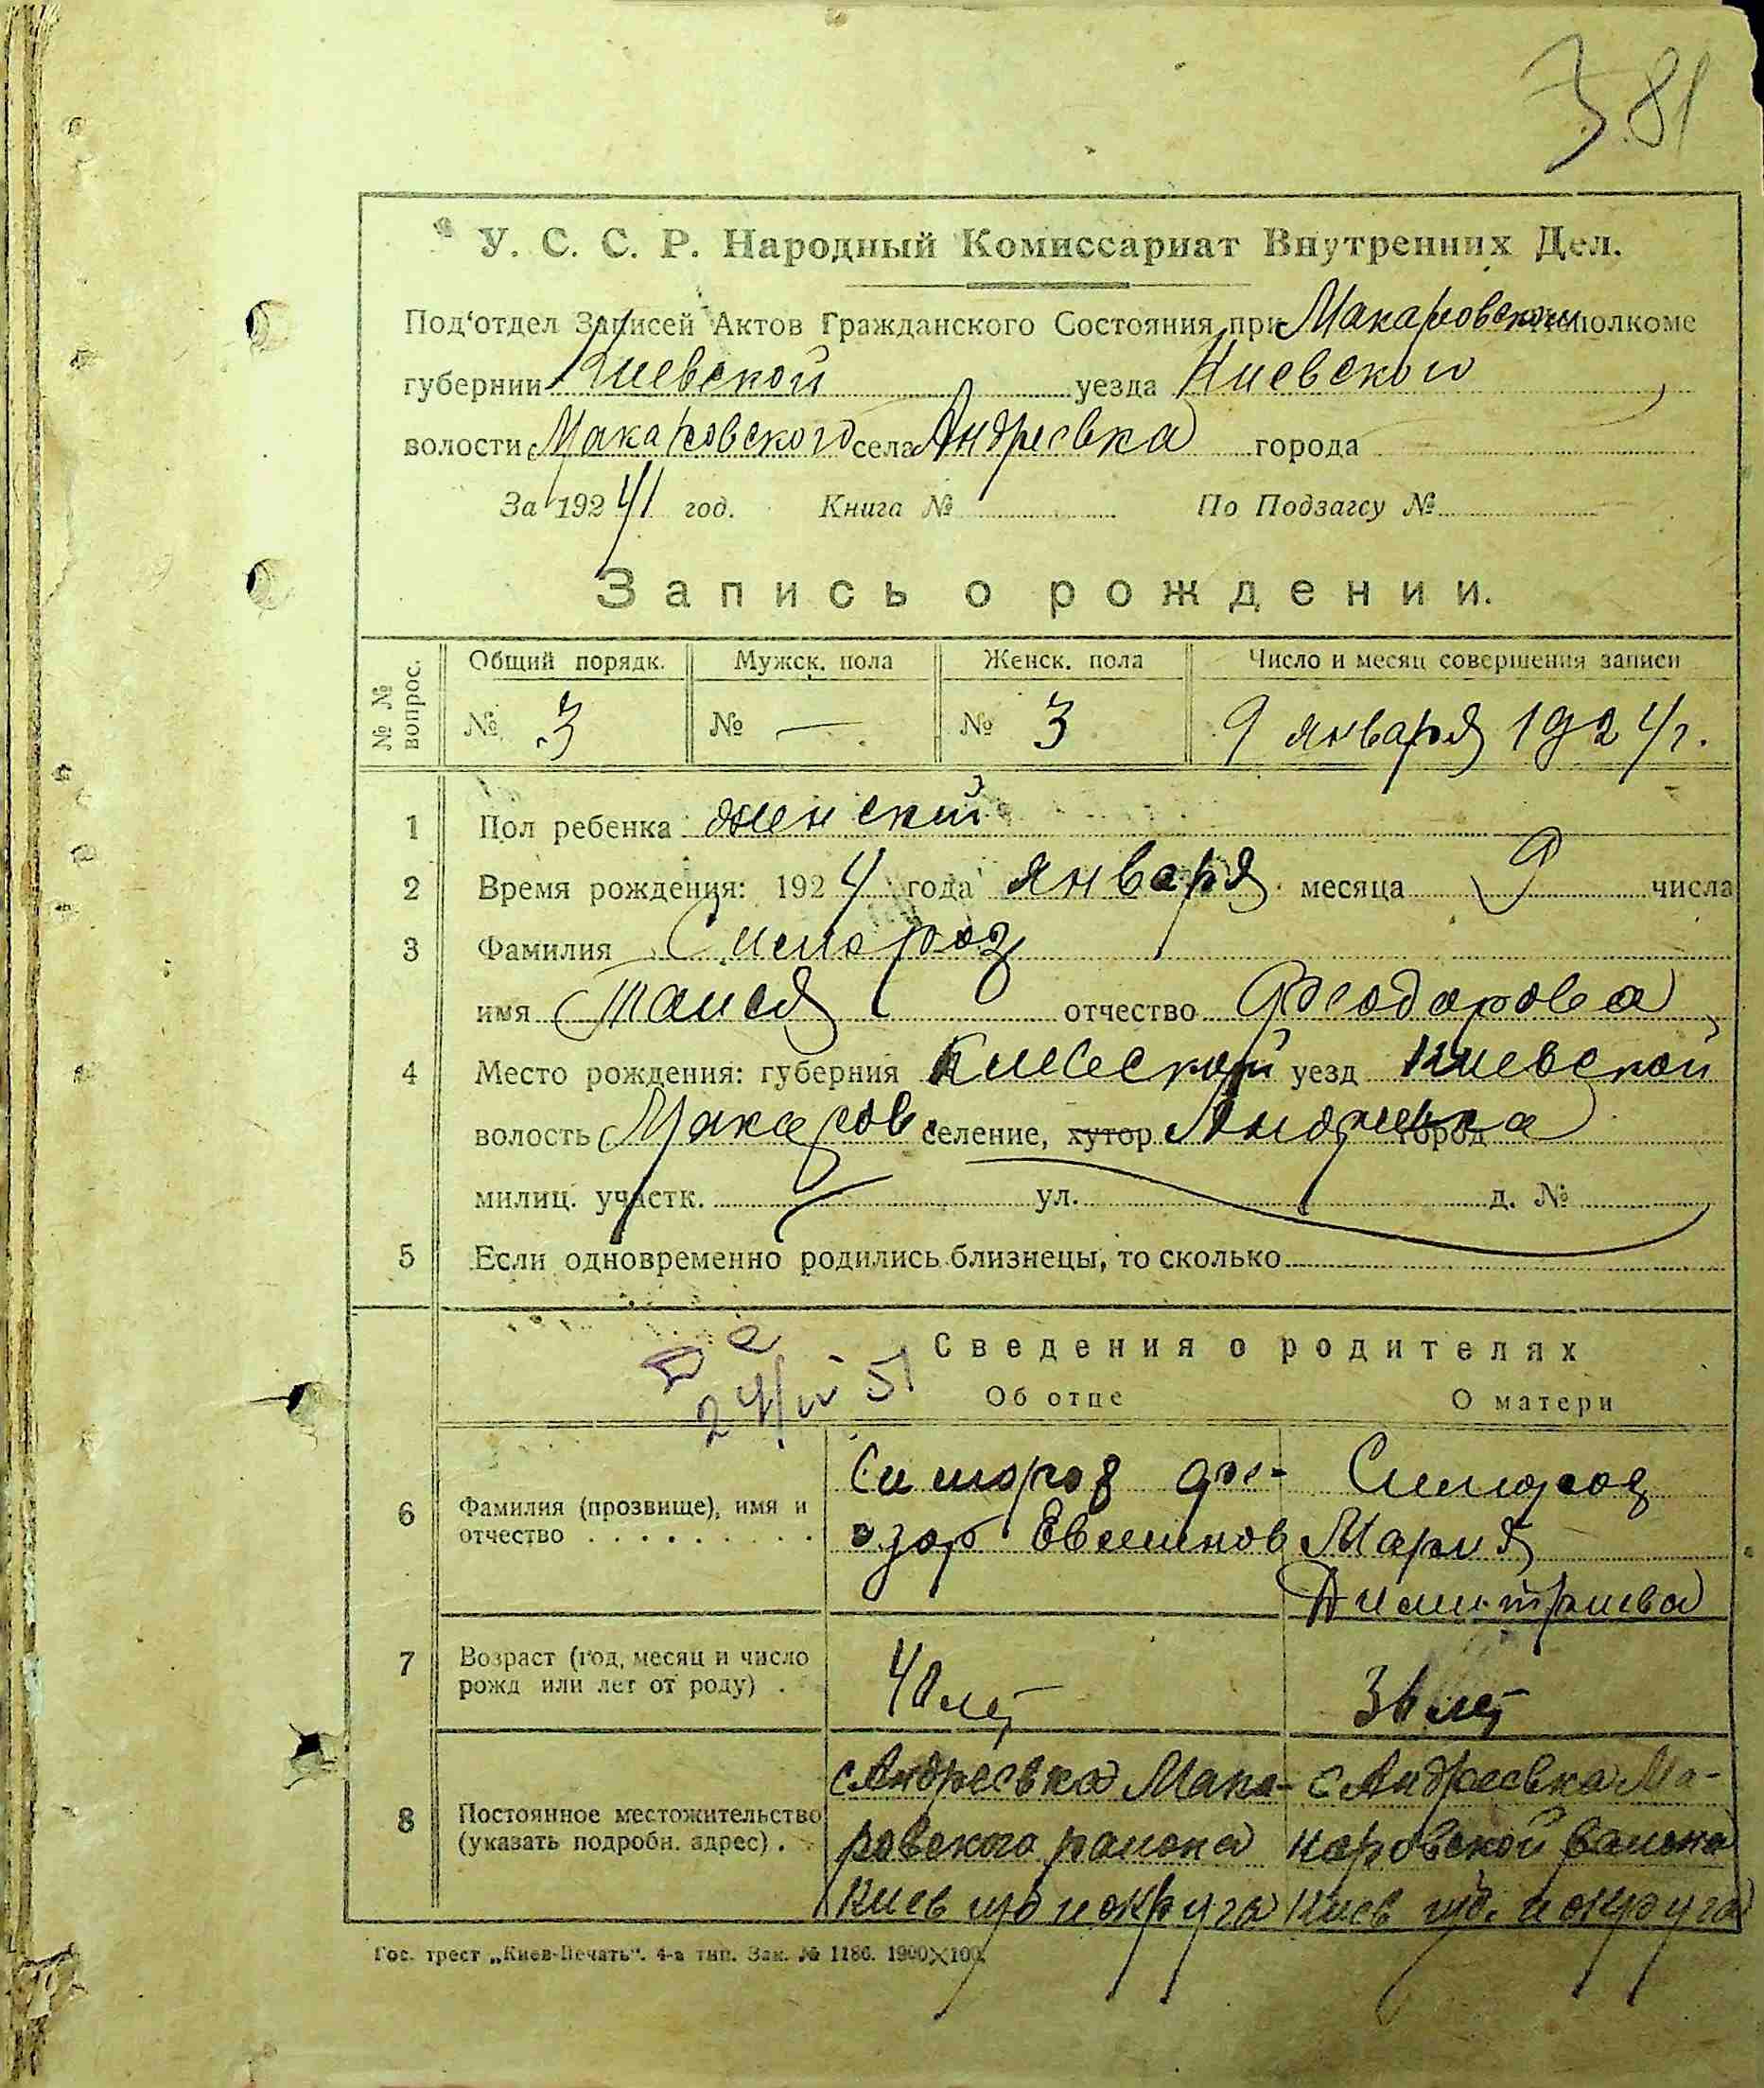 381
У. С. С. Р. Народный Комиссариат Внутренних Дел.
Под'отдел Записей Актов Гражданского Состояния при Макаровском исполкоме
губернии Киевской уезда Киевской
волости Макаровского села Андреевка города
За 1924 год. Книга № По Подзагсу №
Запись о рождении.
№ № вопрос. Общий порядк. Мужск. пола Женск. пола Число и месяц совершения записи
№ 3 № — № 3 9 января 1924 г.
1 Пол ребенка женский
2 Время рождения: 1924 года января месяца 9 числа
3 Фамилия Симороз
имя Таисия отчество Феодорова
4 Место рождения: губерния Киевской уезд Киевской
волость Макаров. селение, хутор Андреевка город
милиц. участк. ул. д. №
5 Если одновременно родились близнецы, то сколько
Сведения о родителях
24/IV 51
Об отце О матери
6 Фамилия (прозвище), имя и отчество
Симороз Фе- Симороз
одор Евсимнов Мария
Димитриева
7 Возраст (год, месяц и число рожд или лет от роду)
40 лет 36 лет
8 Постоянное местожительство (указать подробн. адрес).
с Андреевка Мака- с Андреевка Ма-
ровского района каровской района
Киев губ и округа Киев губ. и округа
Гос. трест „Киев-Печать“. 4-а тип. Зак. № 1186. 1900×100.